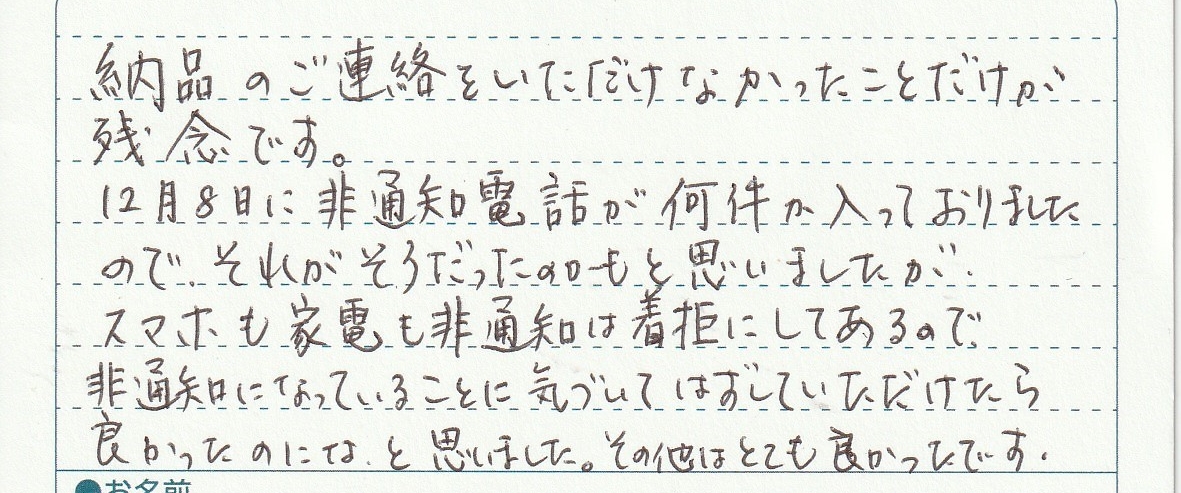 納品のご連絡をいただけなかったことだけが
残念です。
12月8日に非通知電話が何件か入っておりました
ので、それがそうだったのかもと思いましたが、
スマホも家電も非通知は着拒にしてあるので、
非通知になっていることに気づいてはずしていただけたら
良かったのにな、と思いました。その他はとても良かったです。
●お名前